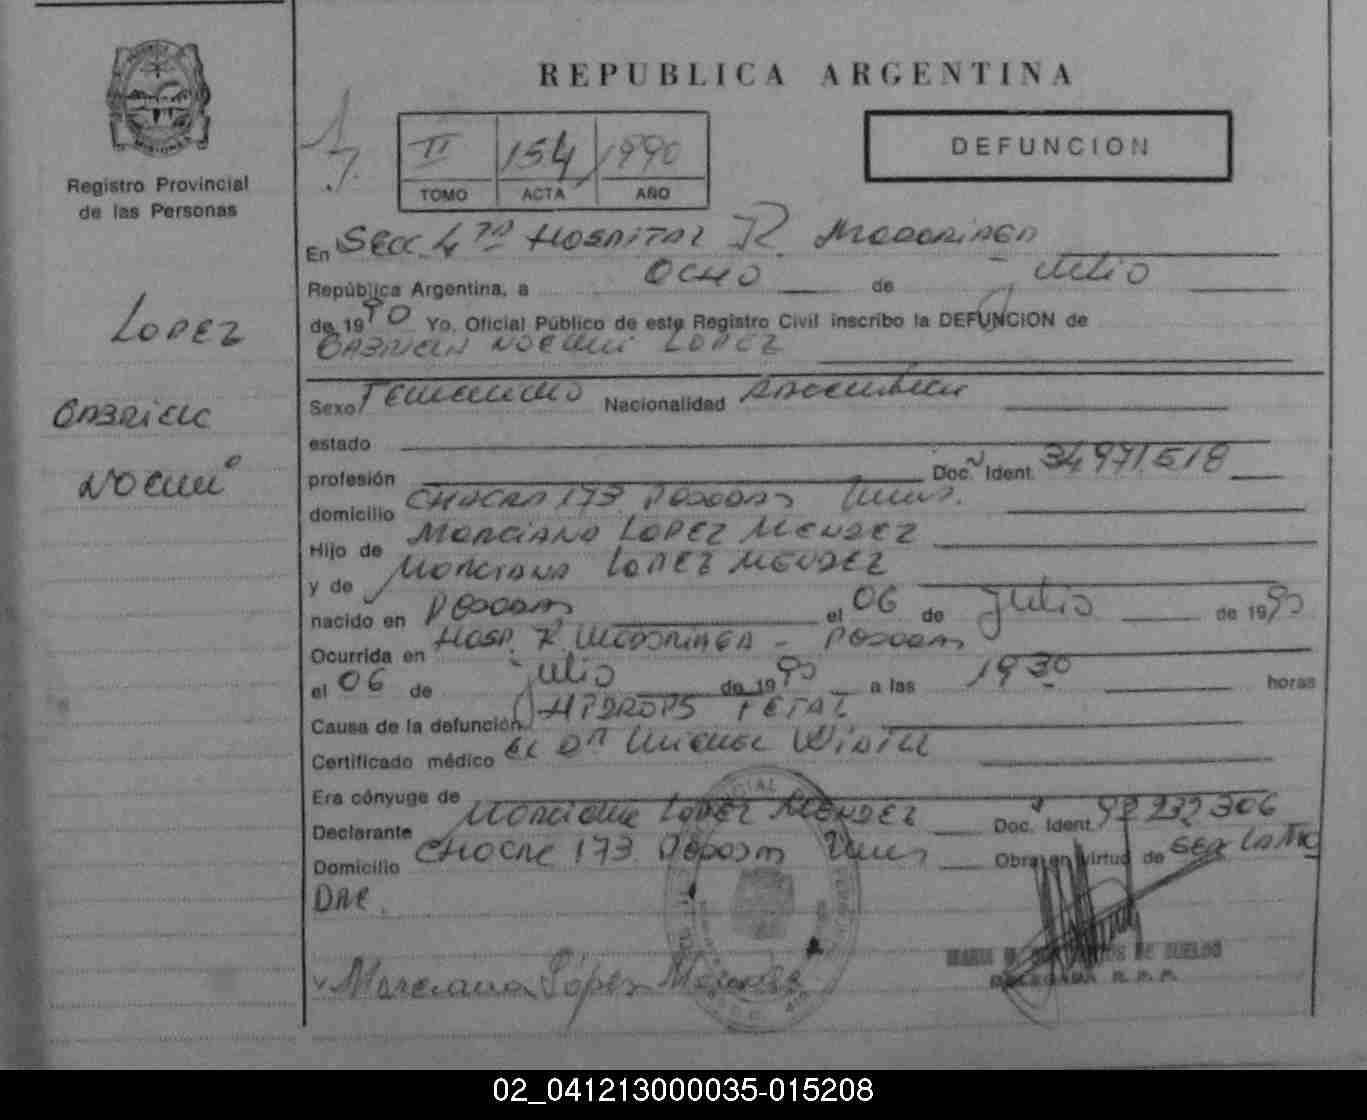 REPUBLICA ARGENTINA
Registro Provincial
de las Personas
II 154 1990
TOMO ACTA AÑO
DEFUNCION
En Secc. 4ta HOSPITAL R. MADARIAGA
República Argentina, a OCHO de Julio
de 1990 Yo, Oficial Público de este Registro Civil inscribo la DEFUNCION de
GABRIELA NOEMI LOPEZ
LOPEZ
GABRIELA
NOEMI
Sexo Femenino Nacionalidad Argentina
estado
profesión Doc. Ident. 34971518
domicilio CHACRA 173 POSADAS
Hijo de MARCIANO LOPEZ MENDEZ
y de MARCIANA LOPEZ MENDEZ
nacido en POSADAS el 06 de Julio de 1990
Ocurrida en HOSP. R. MADARIAGA - POSADAS
el 06 de Julio de 1990 a las 1930 horas
Causa de la defunción HIDROPS FETAL
Certificado médico El Dr Miguel
Era cónyuge de
Declarante Marciana LOPEZ MENDEZ Doc. Ident. 92232306
Domicilio CHACRA 173 POSADAS Obra en virtud de SER LA MA
DRE.
Marciana López Mendez
DELEGADA R. P. P.
02_041213000035-015208